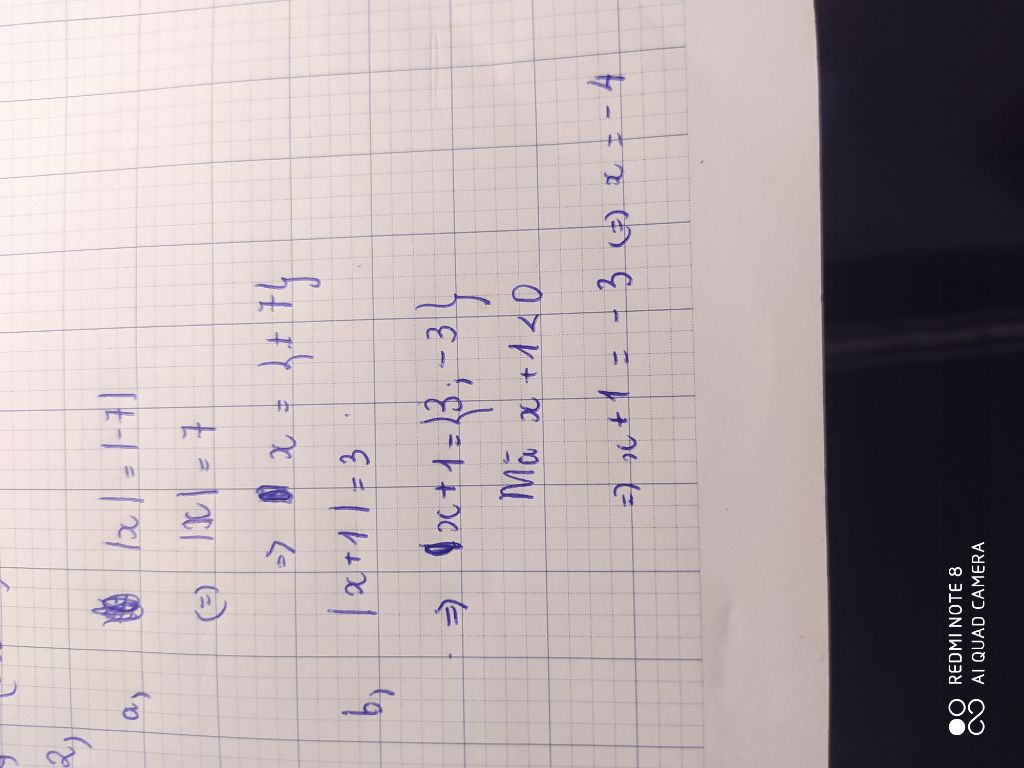 2)
a, |x| = |-7|
(=) |x| = 7
=> x = {± 7}
b, |x+1| = 3
=> x+1={3; -3}
Mà x+1<0
=> x+1 = -3 (=) x = -4
REDMI NOTE 8
AI QUAD CAMERA